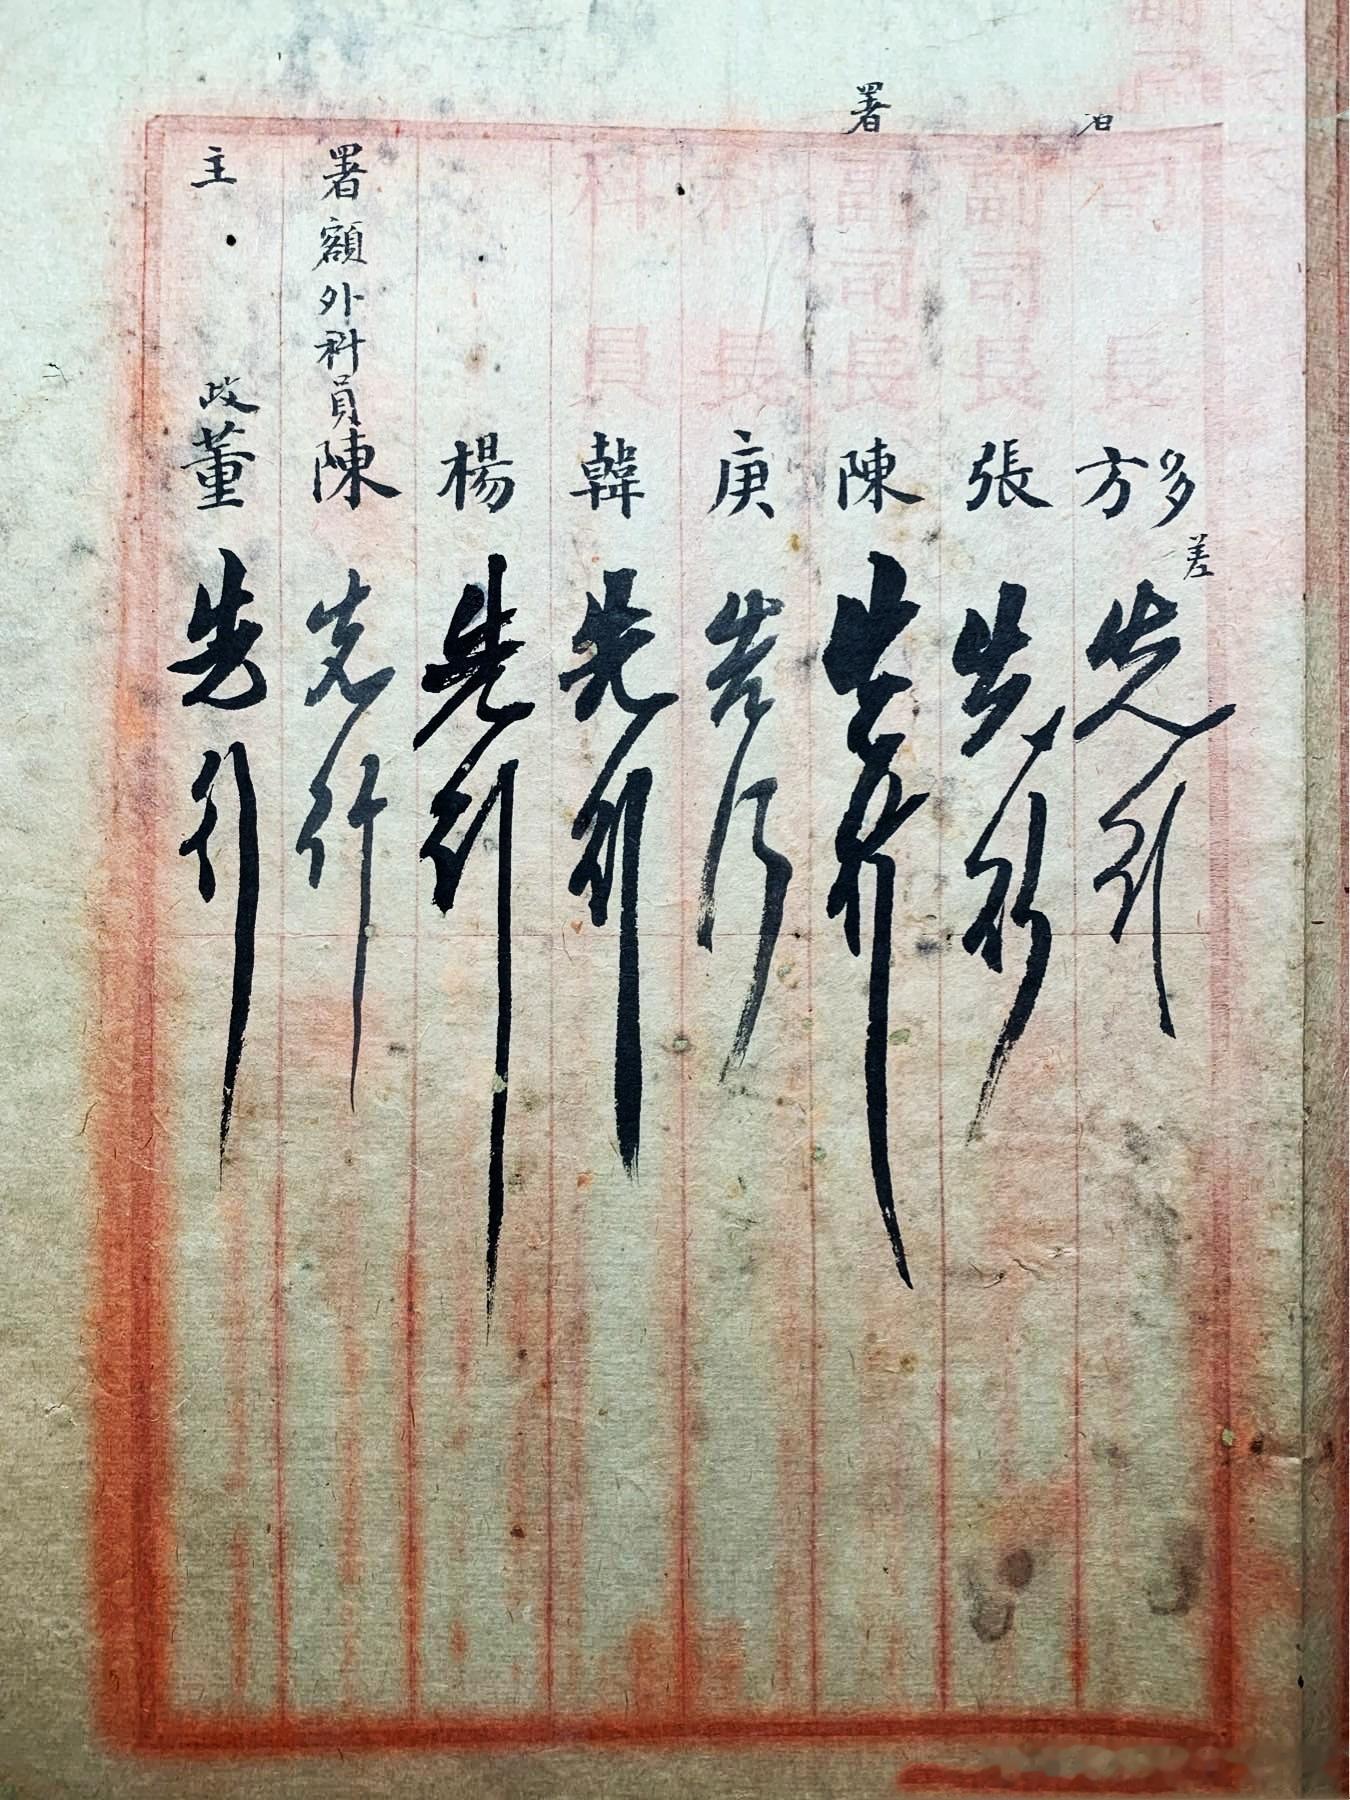 署司長方多差先行
副司長張先行
署副司長陳先行
科長庚先行
科員韓先行
楊先行
署額外科員陳先行
主政董先行